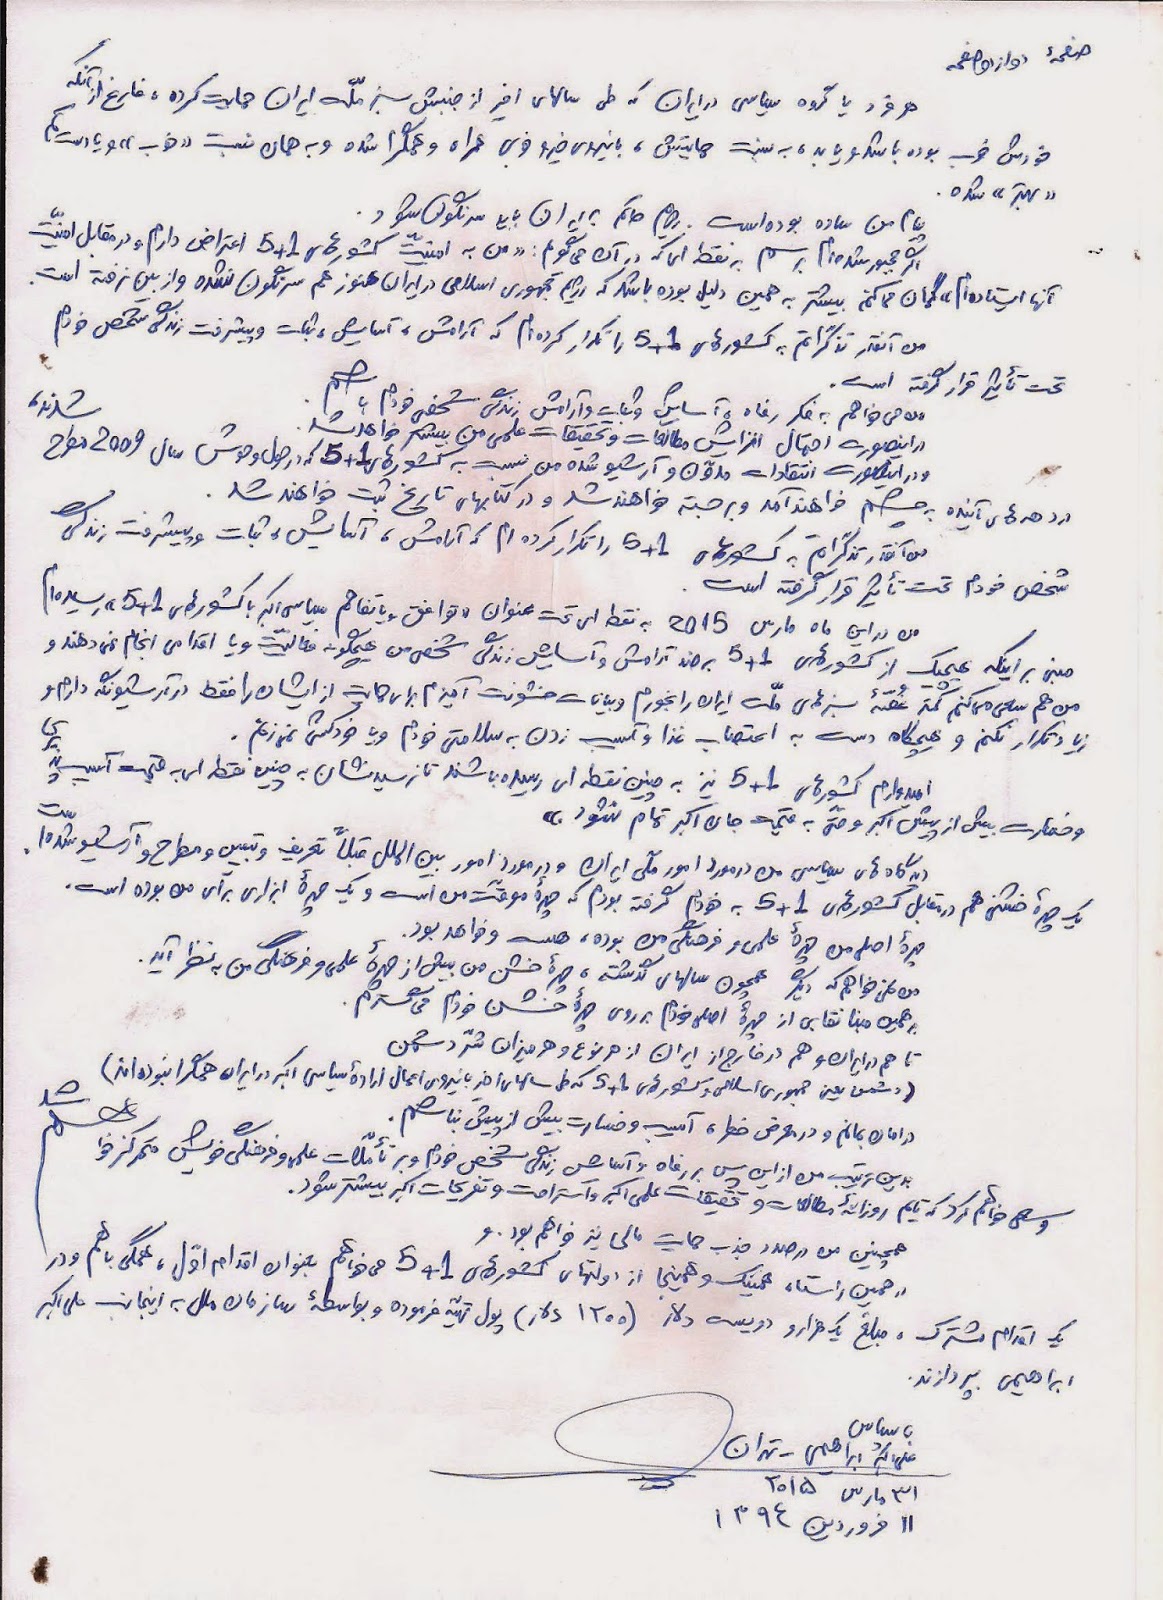 صفحهٔ دو از دو صفحه
هر فرد یا گروه سیاسی در ایران که طی سالهای اخیر از جنبش سبز ملّت ایران حمایت کرده، فارغ از آنکه
خودش خوب بوده باشد و یا بد، به نسبت حمایتش، با نیروی خیر و خوبی همراه و همگرا شده و به همان نسبت «خوب» و یا دست کم
«بهتر» شده.
پیام من ساده بوده است. رژیم حاکم بر ایران باید سرنگون شود.
اگر مجبور شده‌ام برسم به نقطه ای که در آن می‌گویم: «من به امنیّت کشورهای 5+1 اعتراض دارم و در مقابل امنیّت
آنها ایستاده‌ام» گمان می‌کنم بیشتر به همین دلیل بوده باشد که رژیم جمهوری اسلامی در ایران هنوز هم سرنگون نشده و از بین نرفته است.
من آنقدر تذکّراتم به کشورهای 5+1 را تکرار کرده‌ام که آرامش، آسایش، ثبات و پیشرفت زندگی شخص خودم
تحت تأثیر قرار گرفته است.
من می‌خواهم به فکر رفاه و آسایش و ثبات و آرامش زندگی شخصی خودم باشم.
در اینصورت احتمال افزایش مطالعات و تحقیقات علمی من بیشتر خواهد شد.
و در اینصورت انتقادات مدوّن و آرشیو شده من نسبت به کشورهای 5+1 که در حول و حوش سال 2009 مطرح شدند،
در دهه‌های آینده به چشم خواهند آمد و برجسته خواهند شد و در کتابهای تاریخ ثبت خواهند شد.
من آنقدر تذکّراتم به کشورهای 5+1 را تکرار کرده ام که آرامش، آسایش، ثبات و پیشرفت زندگی
شخص خودم تحت تأثیر قرار گرفته است.
من در این ماه مارس 2015 به نقطه ای تحت عنوان «توافق و یا تفاهم سیاسی اکبر با کشورهای 5+1» رسیده‌ام
مبنی بر اینکه هیچیک از کشورهای 5+1 بر ضد آرامش و آسایش زندگی شخص من هیچگونه فعالیّت و یا اقدامی انجام نمی‌دهند و
من هم سعی می‌کنم کمتر غصّهٔ سبزهای ملّت ایران را بخورم و بیانات خشونت آمیزم برای حمایت از ایشان را فقط در آرشیو نگه دارم و
زیاد تکرار نکنم و هیچگاه دست به اعتصاب غذا و آسیب زدن به سلامتی خودم و یا خودکشی نمی‌زنم.
امیدوارم کشورهای 5+1 نیز به چنین نقطه ای رسیده باشند تا نرسیدنشان به چنین نقطه ای به قیمت آسیب پذیری
و خسارت بیش از پیش اکبر و حتّی به قیمت جان اکبر تمام نشود.»
دیدگاه های سیاسی من در مورد امور ملّی ایران و در مورد امور بین الملل قبلاً تعریف و تبیین و مطرح و آرشیو شده است.
یک چهرهٔ خشنی هم در مقابل کشورهای 5+1 به خودم گرفته بودم که چهرهٔ موقّت من است و یک چهرهٔ ابزاری برای من بوده است.
چهرهٔ اصلی من چهرهٔ علمی و فرهنگی من بوده، هست و خواهد بود.
من نمی‌خواهم که دیگر همچون سالهای گذشته، چهرهٔ خشن من بیش از چهرهٔ علمی و فرهنگی من به نظر آید.
بر همین مبنا نقابی از چهرهٔ اصلی خودم بر روی چهرهٔ خشن خودم می‌گسترم.
تا هم در ایران و هم در خارج از ایران از هر نوع و هر میزان شرّ دشمن
(دشمن یعنی جمهوری اسلامی و کشورهای 5+1 که طی سالهای اخیر با نیروی اعمال ارادهٔ سیاسی اکبر در ایران همگرا نبوده‌اند)
در امان بمانم و در معرض خطر، آسیب و خسارت بیش از پیش نباشم.
بدین ترتیب من از این پس بر رفاه و آسایش زندگی شخص خودم و بر تأمّلات علمی و فرهنگی خویش متمرکز خواهم شد
و سعی خواهم کرد که تایم روزانهٔ مطالعات و تحقیقات علمی اکبر و استراحت و تفریحات اکبر بیشتر شود.
همچنین من درصدد جذب حمایت مالی نیز خواهم بود. و
در همین راستا، همینک و همینجا از دولتهای کشورهای 5+1 می‌خواهم بعنوان اقدام اوّل، همگی با هم و در
یک اقدام مشترک، مبلغ یک هزار و دویست دلار (۱۲۰۰ دلار) پول تهیّه فرموده و بواسطهٔ سازمان ملل به اینجانب علی اکبر
ابراهیمی بپردازند.
با سپاس
علی اکبر ابراهیمی - تهران
۳۱ مارس ۲۰۱۵
۱۱ فروردین ۱۳۹٤